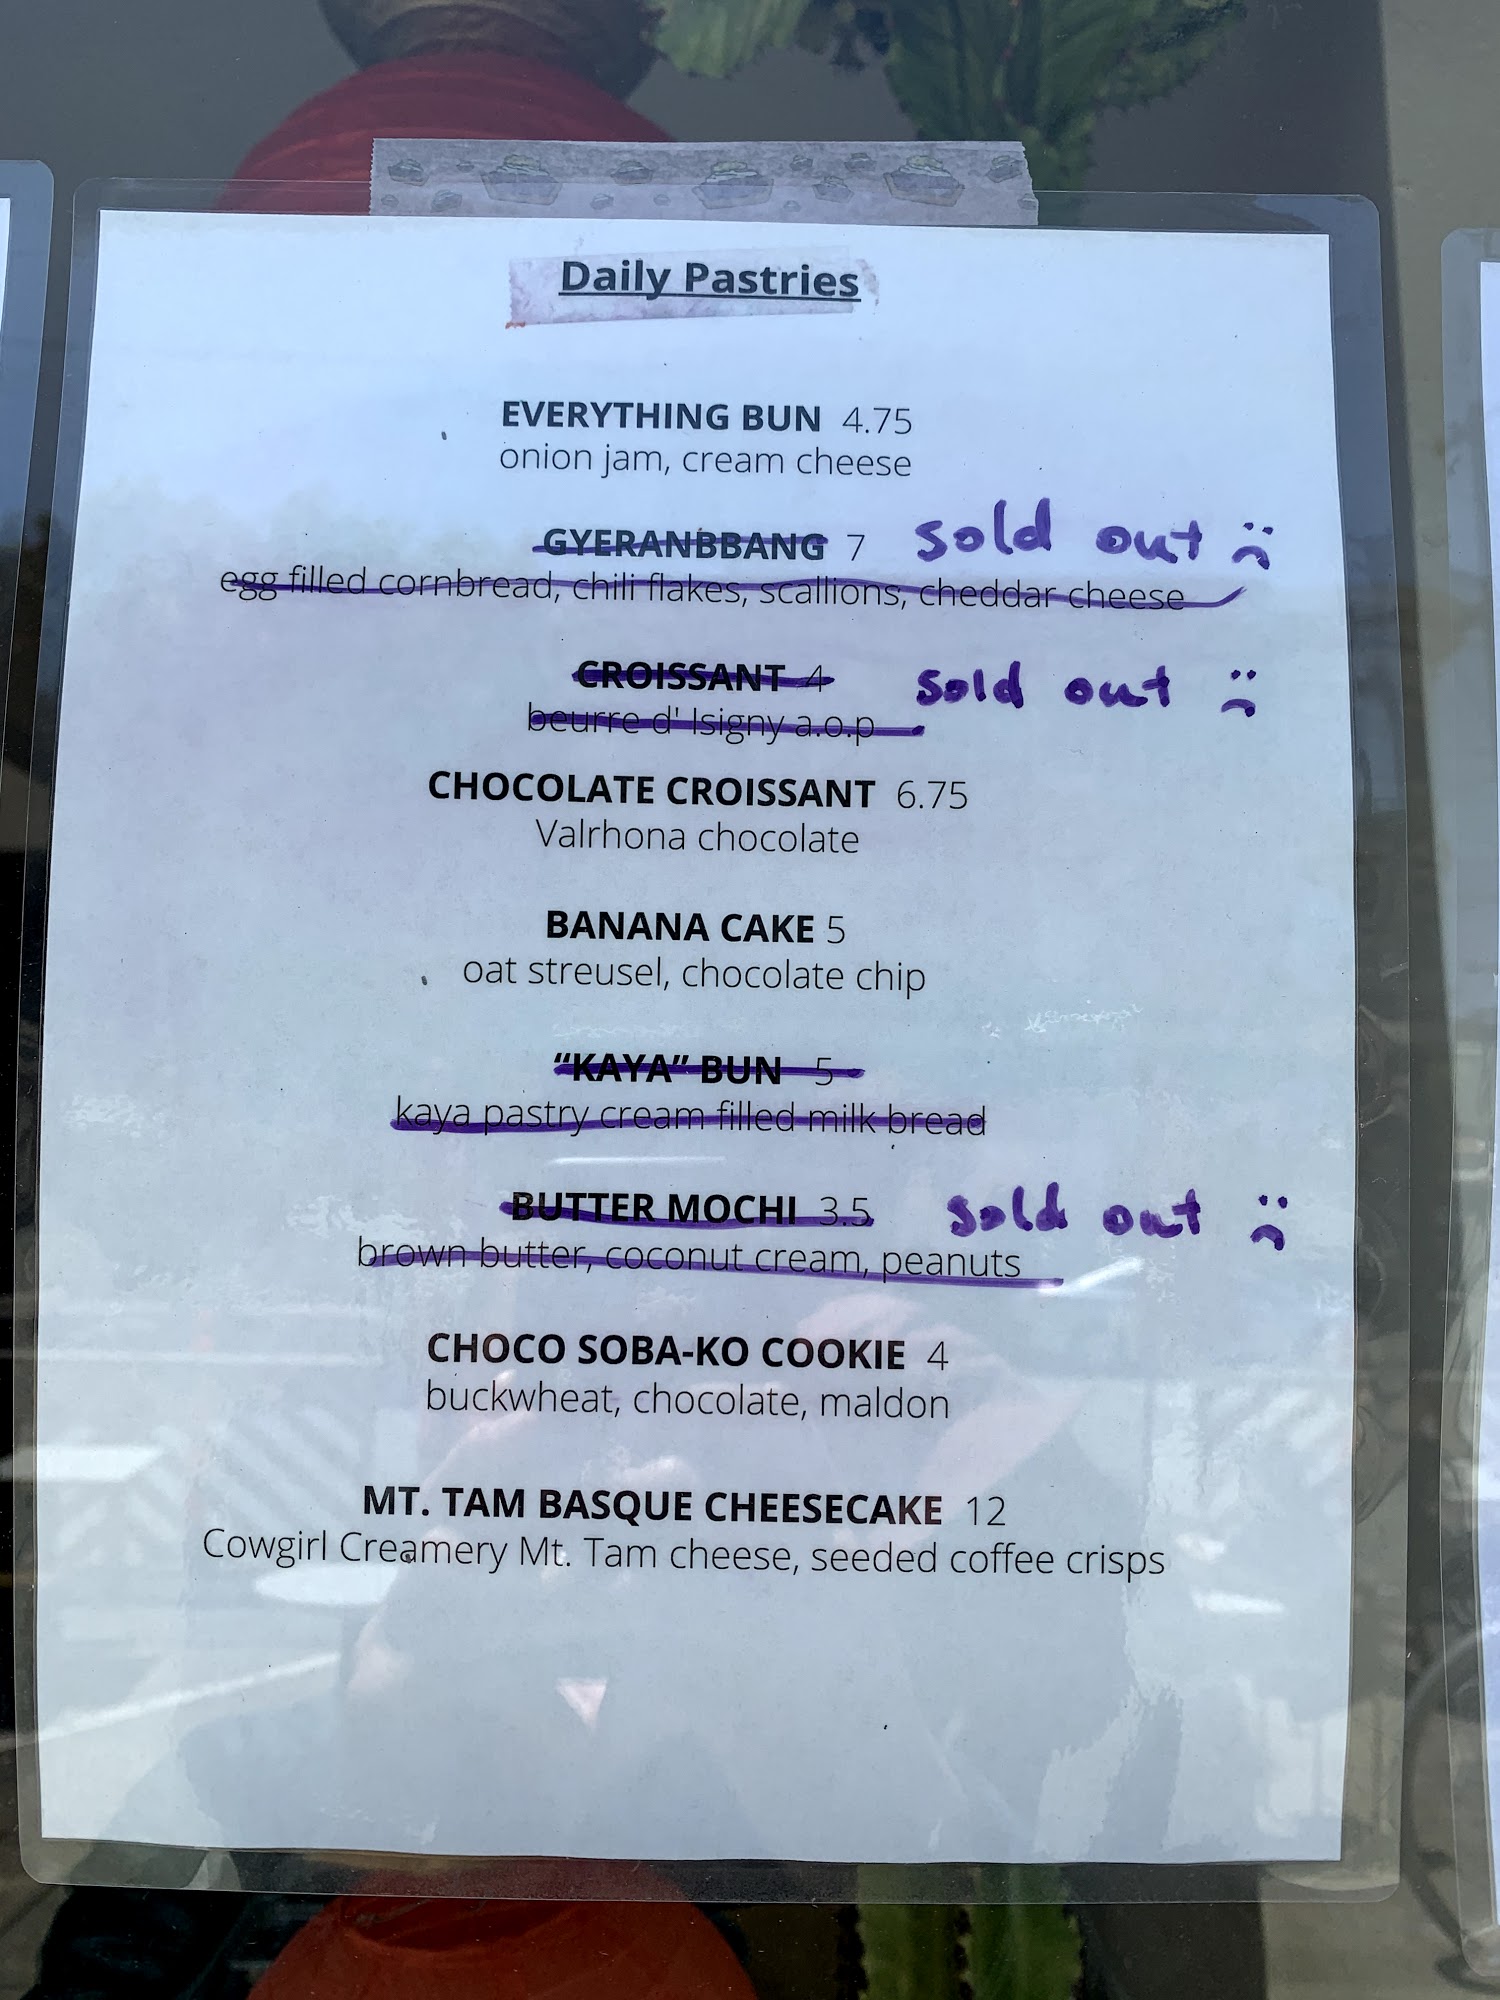 Daily Pastries
EVERYTHING BUN 4.75
onion jam, cream cheese
GYERANBBANG 7 sold out
egg filled cornbread, chili flakes, scallions, cheddar cheese
CROISSANT 4 sold out
beurre d' Isigny a.o.p
CHOCOLATE CROISSANT 6.75
Valrhona chocolate
BANANA CAKE 5
oat streusel, chocolate chip
“KAYA” BUN 5
kaya pastry cream filled milk bread
BUTTER MOCHI 3.5 sold out
brown butter, coconut cream, peanuts
CHOCO SOBA-KO COOKIE 4
buckwheat, chocolate, maldon
MT. TAM BASQUE CHEESECAKE 12
Cowgirl Creamery Mt. Tam cheese, seeded coffee crisps